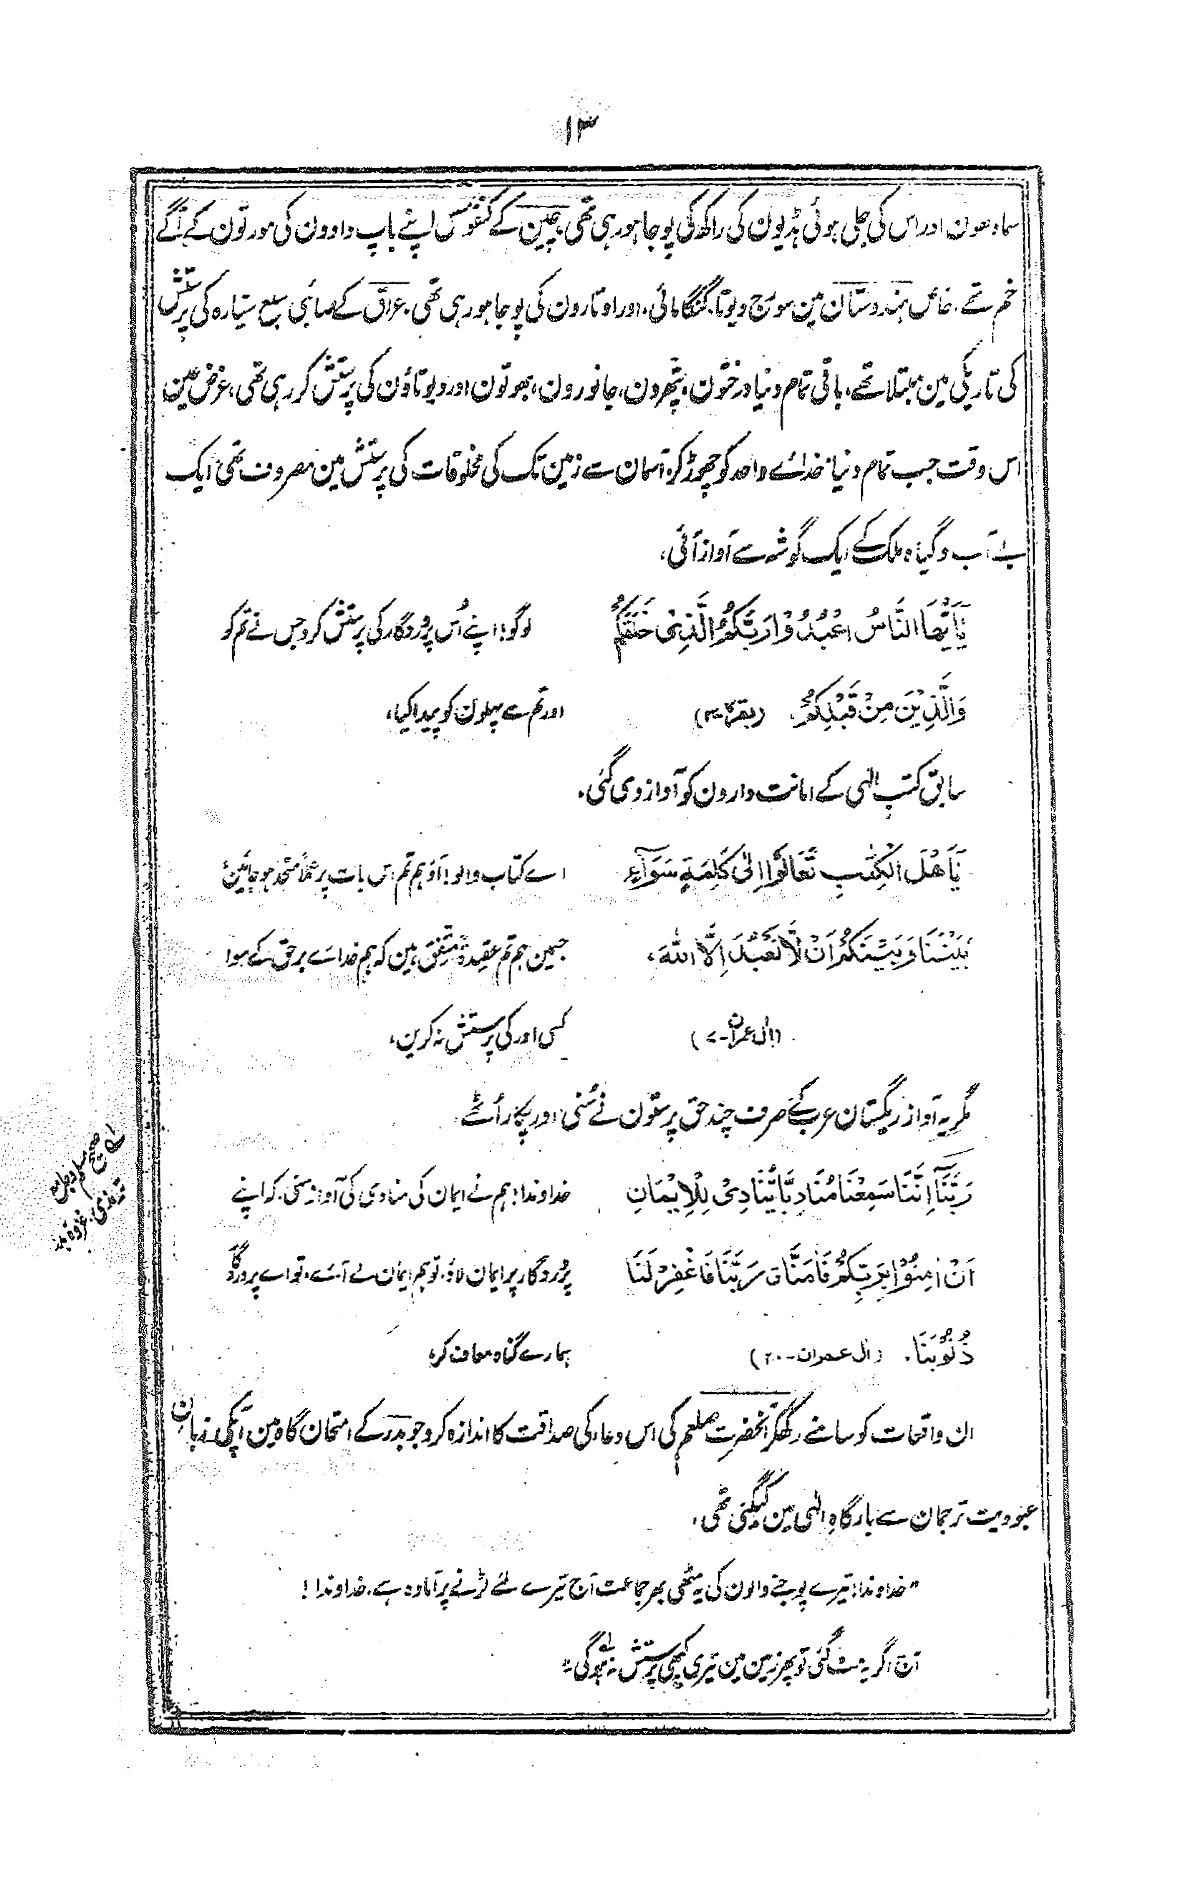 ۱۳
سمادھون اور اس کی جلی ہوئی ہڈیون کی راکھ کی پوجا ہو رہی تھی، چین کے کنفوس اپنے باپ دادون کی مورتون کے آگے
خم تھے، خاص ہندوستان مین سورج دیوتا، گنگا مائی، اور اوتارون کی پوجا ہو رہی تھی، عراق کے صابئی سبع سیارہ کی پرستش
کی تاریکی مین مبتلا تھے، باقی تمام دنیا درختون، پتھرون، جانورون، بھوتون اور دیوتاؤن کی پرستش کر رہی تھی، غرض عین
اس وقت جب تمام دنیا خدائے واحد کو چھوڑ کر آسمان سے زمین تک کی مخلوقات کی پرستش مین مصروف تھی ایک
بے آب و گیاہ ملک کے ایک گوشہ سے آواز آئی،
يَآيُّهَا النَّاسُ اعْبُدُوْا رَبَّكُمُ الَّذِيْ خَلَقَكُمْ لوگو! اپنے اُس پروردگار کی پرستش کرو جس نے تم کو
وَالَّذِيْنَ مِنْ قَبْلِكُمْ، (بقرہ-۳) اور تم سے پہلون کو پیدا کیا،
سابق کتب الٰہی کے امانت دارون کو آواز دی گئی،
يَآهْلَ الْكِتٰبِ تَعَالَوْا اِلٰى كَلِمَةٍ سَوَآءٍ اے کتاب والو! آؤ ہم تم اس بات پر عملاً متحد ہو جائین
بَيْنَنَا وَبَيْنَكُمْ اَنْ لَّا نَعْبُدَ اِلَّا اللّٰهَ، جسمین ہم تم عقیدۃً متفق ہین کہ ہم خدائے برحق کے سوا
(اٰل عمران-۷) کسی اور کی پرستش نہ کرین،
مگر یہ آواز ریگستان عرب کے صرف چند حق پرستون نے سُنی اور پکار اُٹھے،
رَبَّنَآ اِنَّنَا سَمِعْنَا مُنَادِيًا يُّنَادِيْ لِلْاِيْمَانِ خداوندا! ہم نے ایمان کی منادی کی آواز سنی، کہ اپنے
اَنْ اٰمِنُوْا بِرَبِّكُمْ فَاٰمَنَّا، رَبَّنَا فَاغْفِرْ لَنَا پروردگار پر ایمان لاؤ، تو ہم ایمان لے آئے، تو اے پروردگار
ذُنُوْبَنَا، (اٰل عمران-۲۰) ہمارے گناہ معاف کر،
ان واقعات کو سامنے رکھکر آنحضرت صلعم کی اس دعاء کی صداقت کا اندازہ کرو جو بدر کے امتحان گاہ مین آپکی زبانِ
عبودیت ترجمان سے بارگاہِ الٰہی مین کیگئی تھی،
"خداوندا! تیرے پوجنے والون کی یہ مٹھی بھر جماعت آج تیرے لئے لڑنے پر آمادہ ہے، خداوندا!
آج اگر یہ مٹ گئی تو پھر زمین مین تیری کبھی پرستش نہ ہوگی"
صحیح مسلم
ترمذی، غزوہ بدر